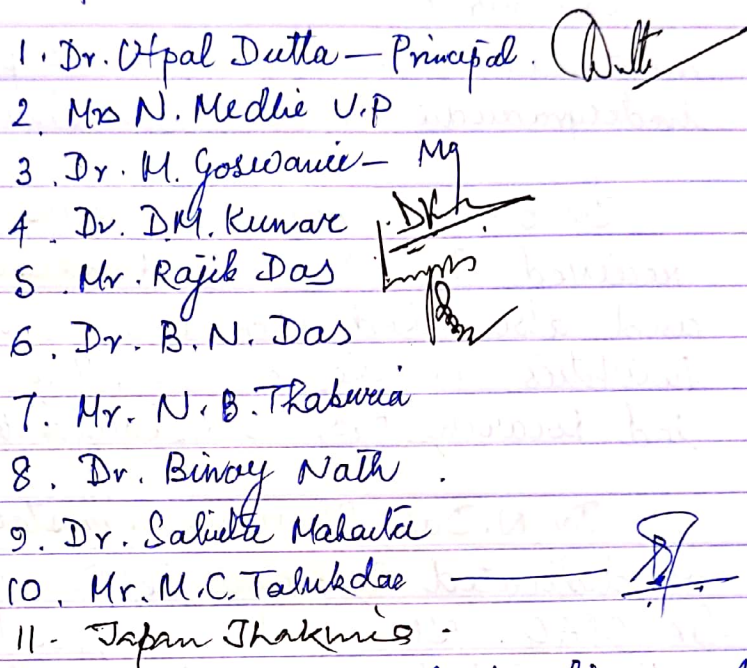 1. Dr. Utpal Dutta — Principal.
2. Mrs N. Medhie V.P
3. Dr. M. Goswamie — Mg
4. Dr. D.M. Kumar
5. Mr. Rajib Das
6. Dr. B. N. Das
7. Mr. N. B. Thakuria
8. Dr. Binoy Nath.
9. Dr. Sabita Mahanta
10. Mr. M. C. Talukdar —
11 -